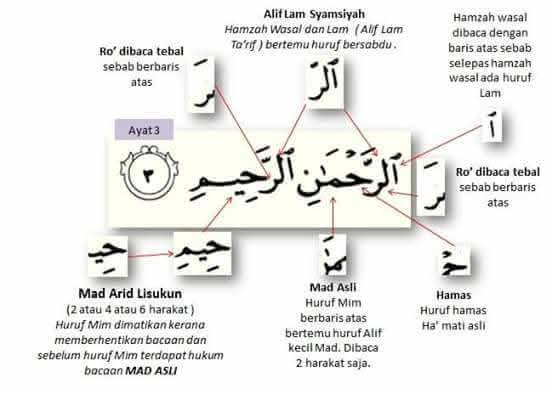 Alif Lam Syamsiyah
Hamzah Wasal dan Lam ( Alif Lam
Ta'rif ) bertemu huruf bersabdu .
Hamzah wasal
dibaca dengan
baris atas sebab
selepas hamzah
wasal ada huruf
Lam
Ro' dibaca tebal
sebab berbaris
atas
رَ
ٱلرَّ
ٱَ
Ayat 3
ٱلرَّحْمَٰنِ ٱلرَّحِيمِ ٣
Ro' dibaca tebal
sebab berbaris
atas
رَ
حِي
حِيمِ
مَٰ
حْ
Mad Arid Lisukun
(2 atau 4 atau 6 harakat )
Huruf Mim dimatikan kerana
memberhentikan bacaan dan
sebelum huruf Mim terdapat hukum
bacaan MAD ASLI
Mad Asli
Huruf Mim
berbaris atas
bertemu huruf Alif
kecil Mad. Dibaca
2 harakat saja.
Hamas
Huruf hamas
Ha' mati asli